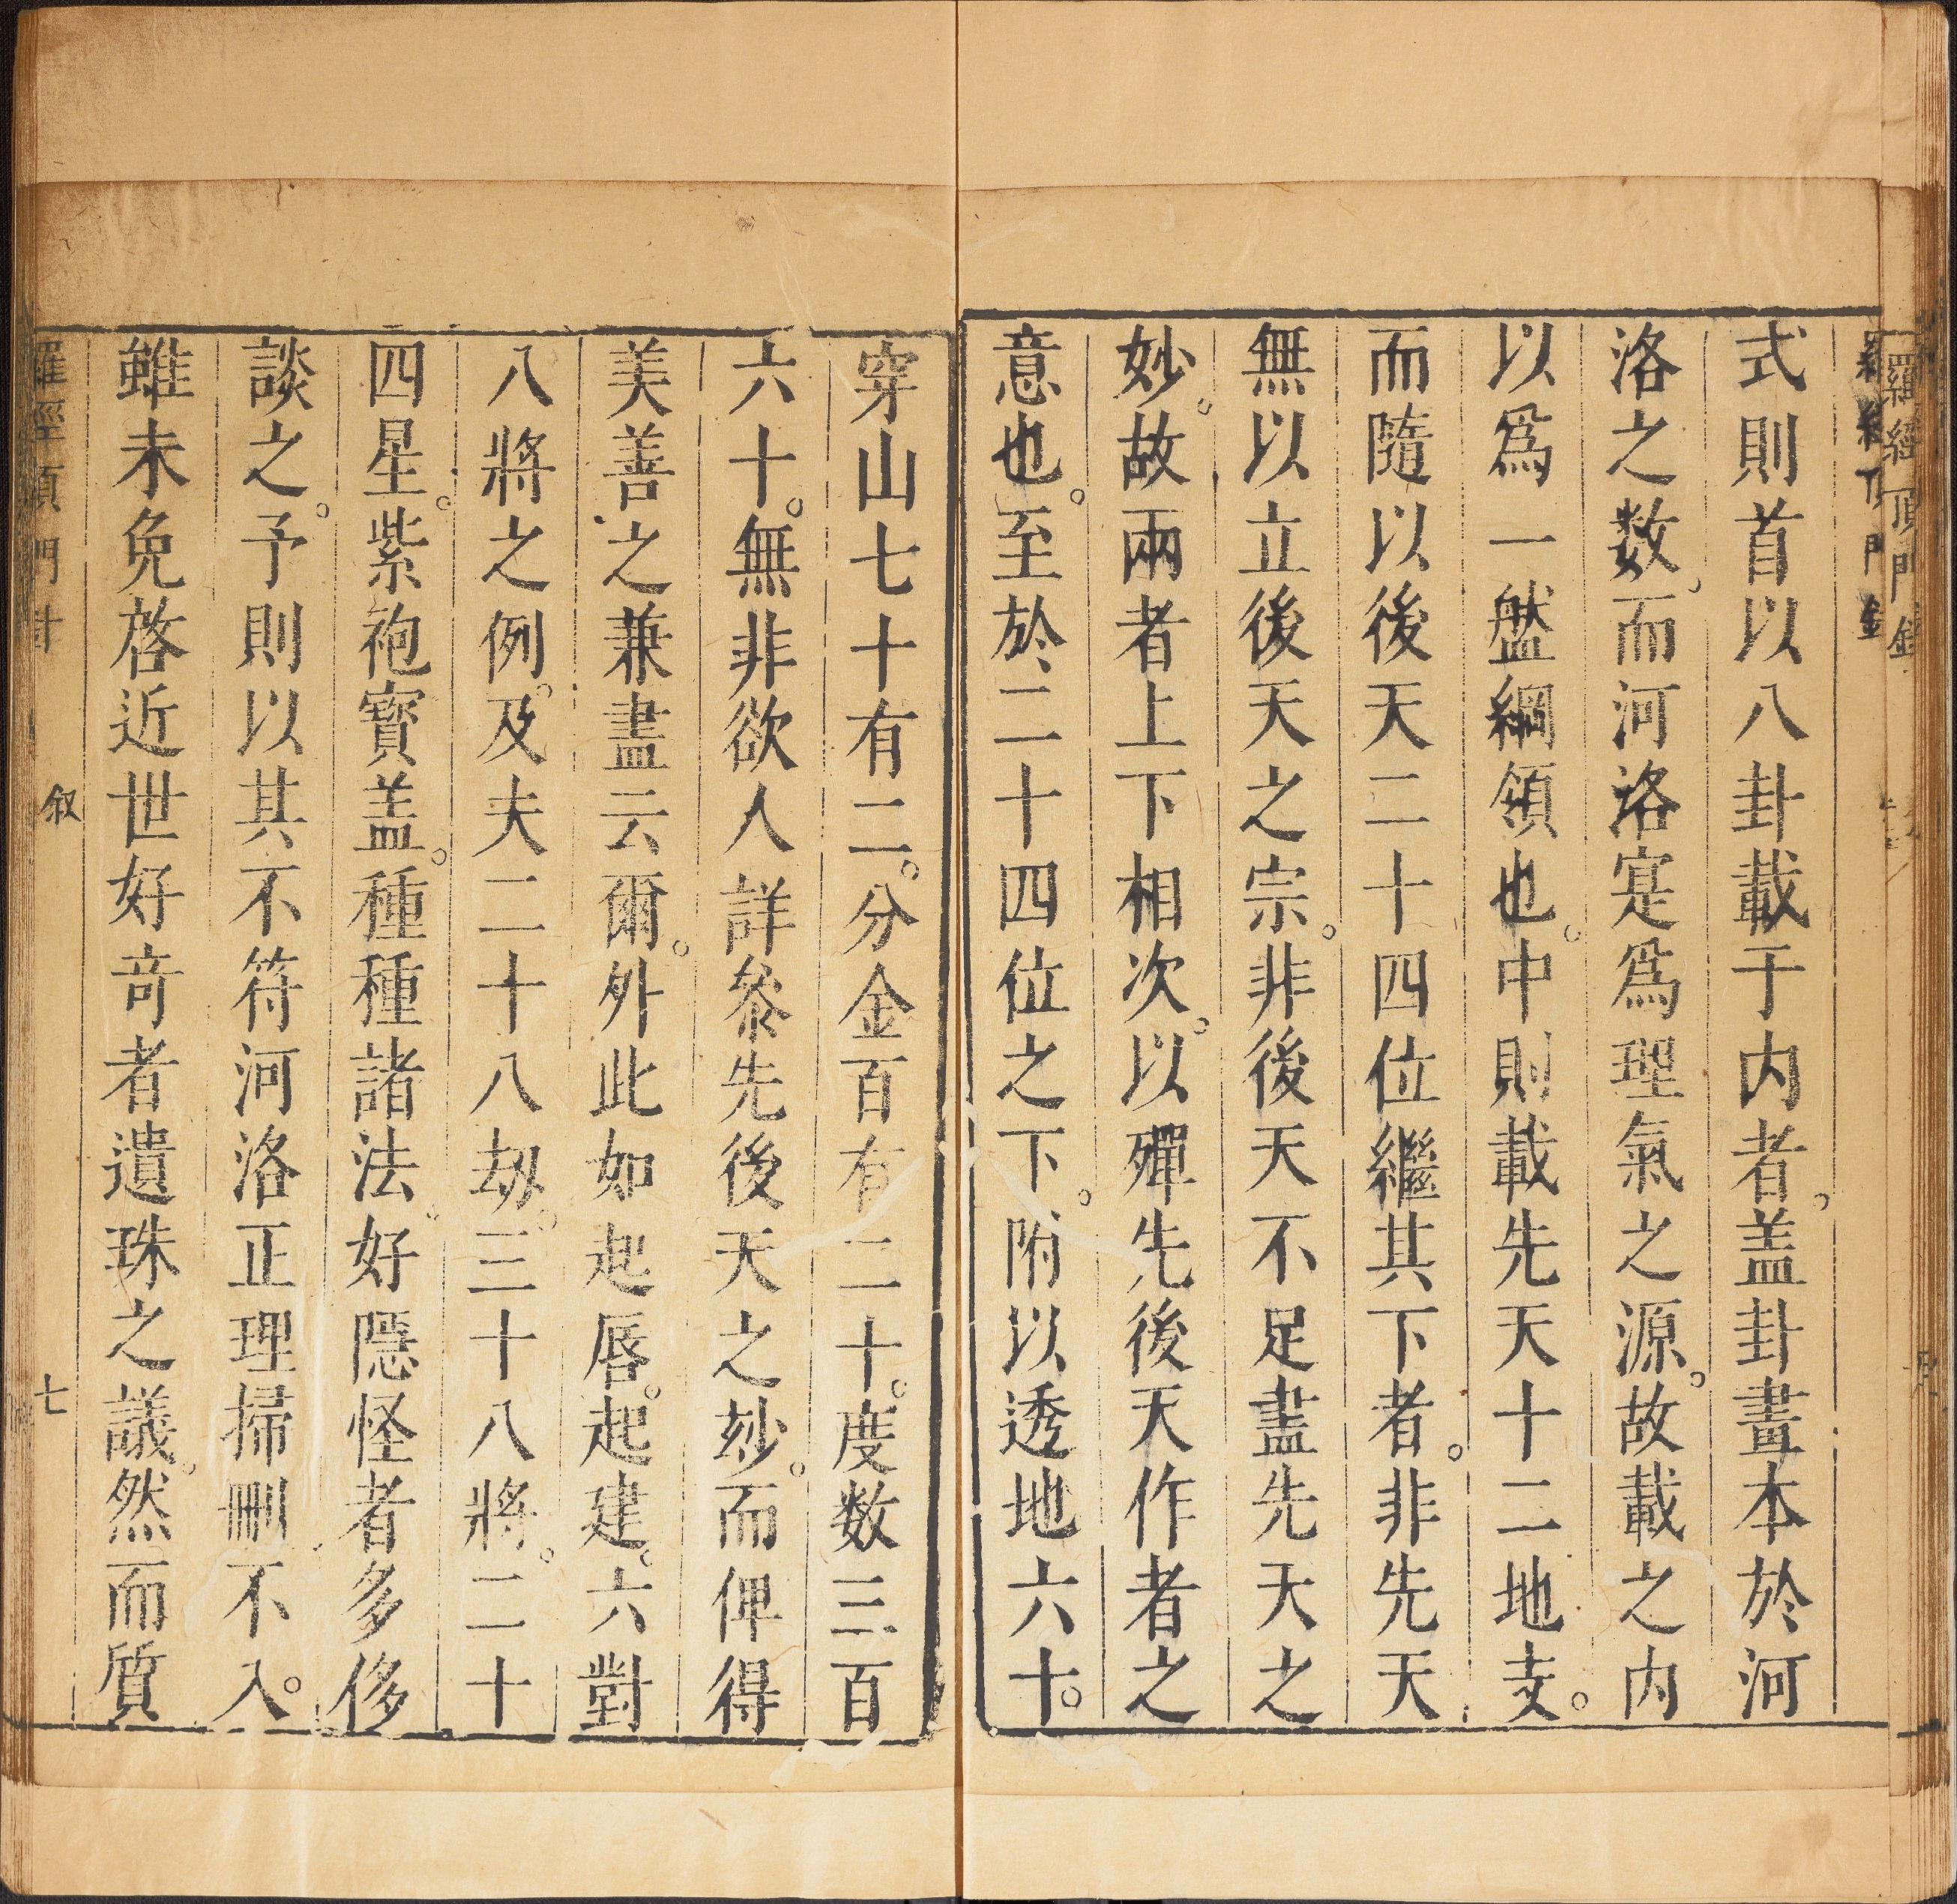 羅經頂門針
式則首以八卦載于内者。盖卦畫本於河
洛之数。而河洛寔爲理氣之源。故載之内
以爲一盤綱領也。中則載先天十二地支。
而隨以後天二十四位繼其下者。非先天
無以立後天之宗。非後天不足盡先天之
妙。故兩者上下相次。以殫先後天作者之
意也。至於二十四位之下。附以透地六十。
穿山七十有二。分金百有二十。度数三百
六十。無非欲人詳叅先後天之玅。而俾得
美善之兼盡云爾。外此如起唇。起建。六對
八將之例。及夫二十八刼。三十八將。二十
四星。紫袍寳盖。種種諸法。好隱怪者多侈
談之。予則以其不符河洛正理掃刪不入。
雖未免啓近世好竒者遺珠之議。然而質
羅經頂門針
叙
七